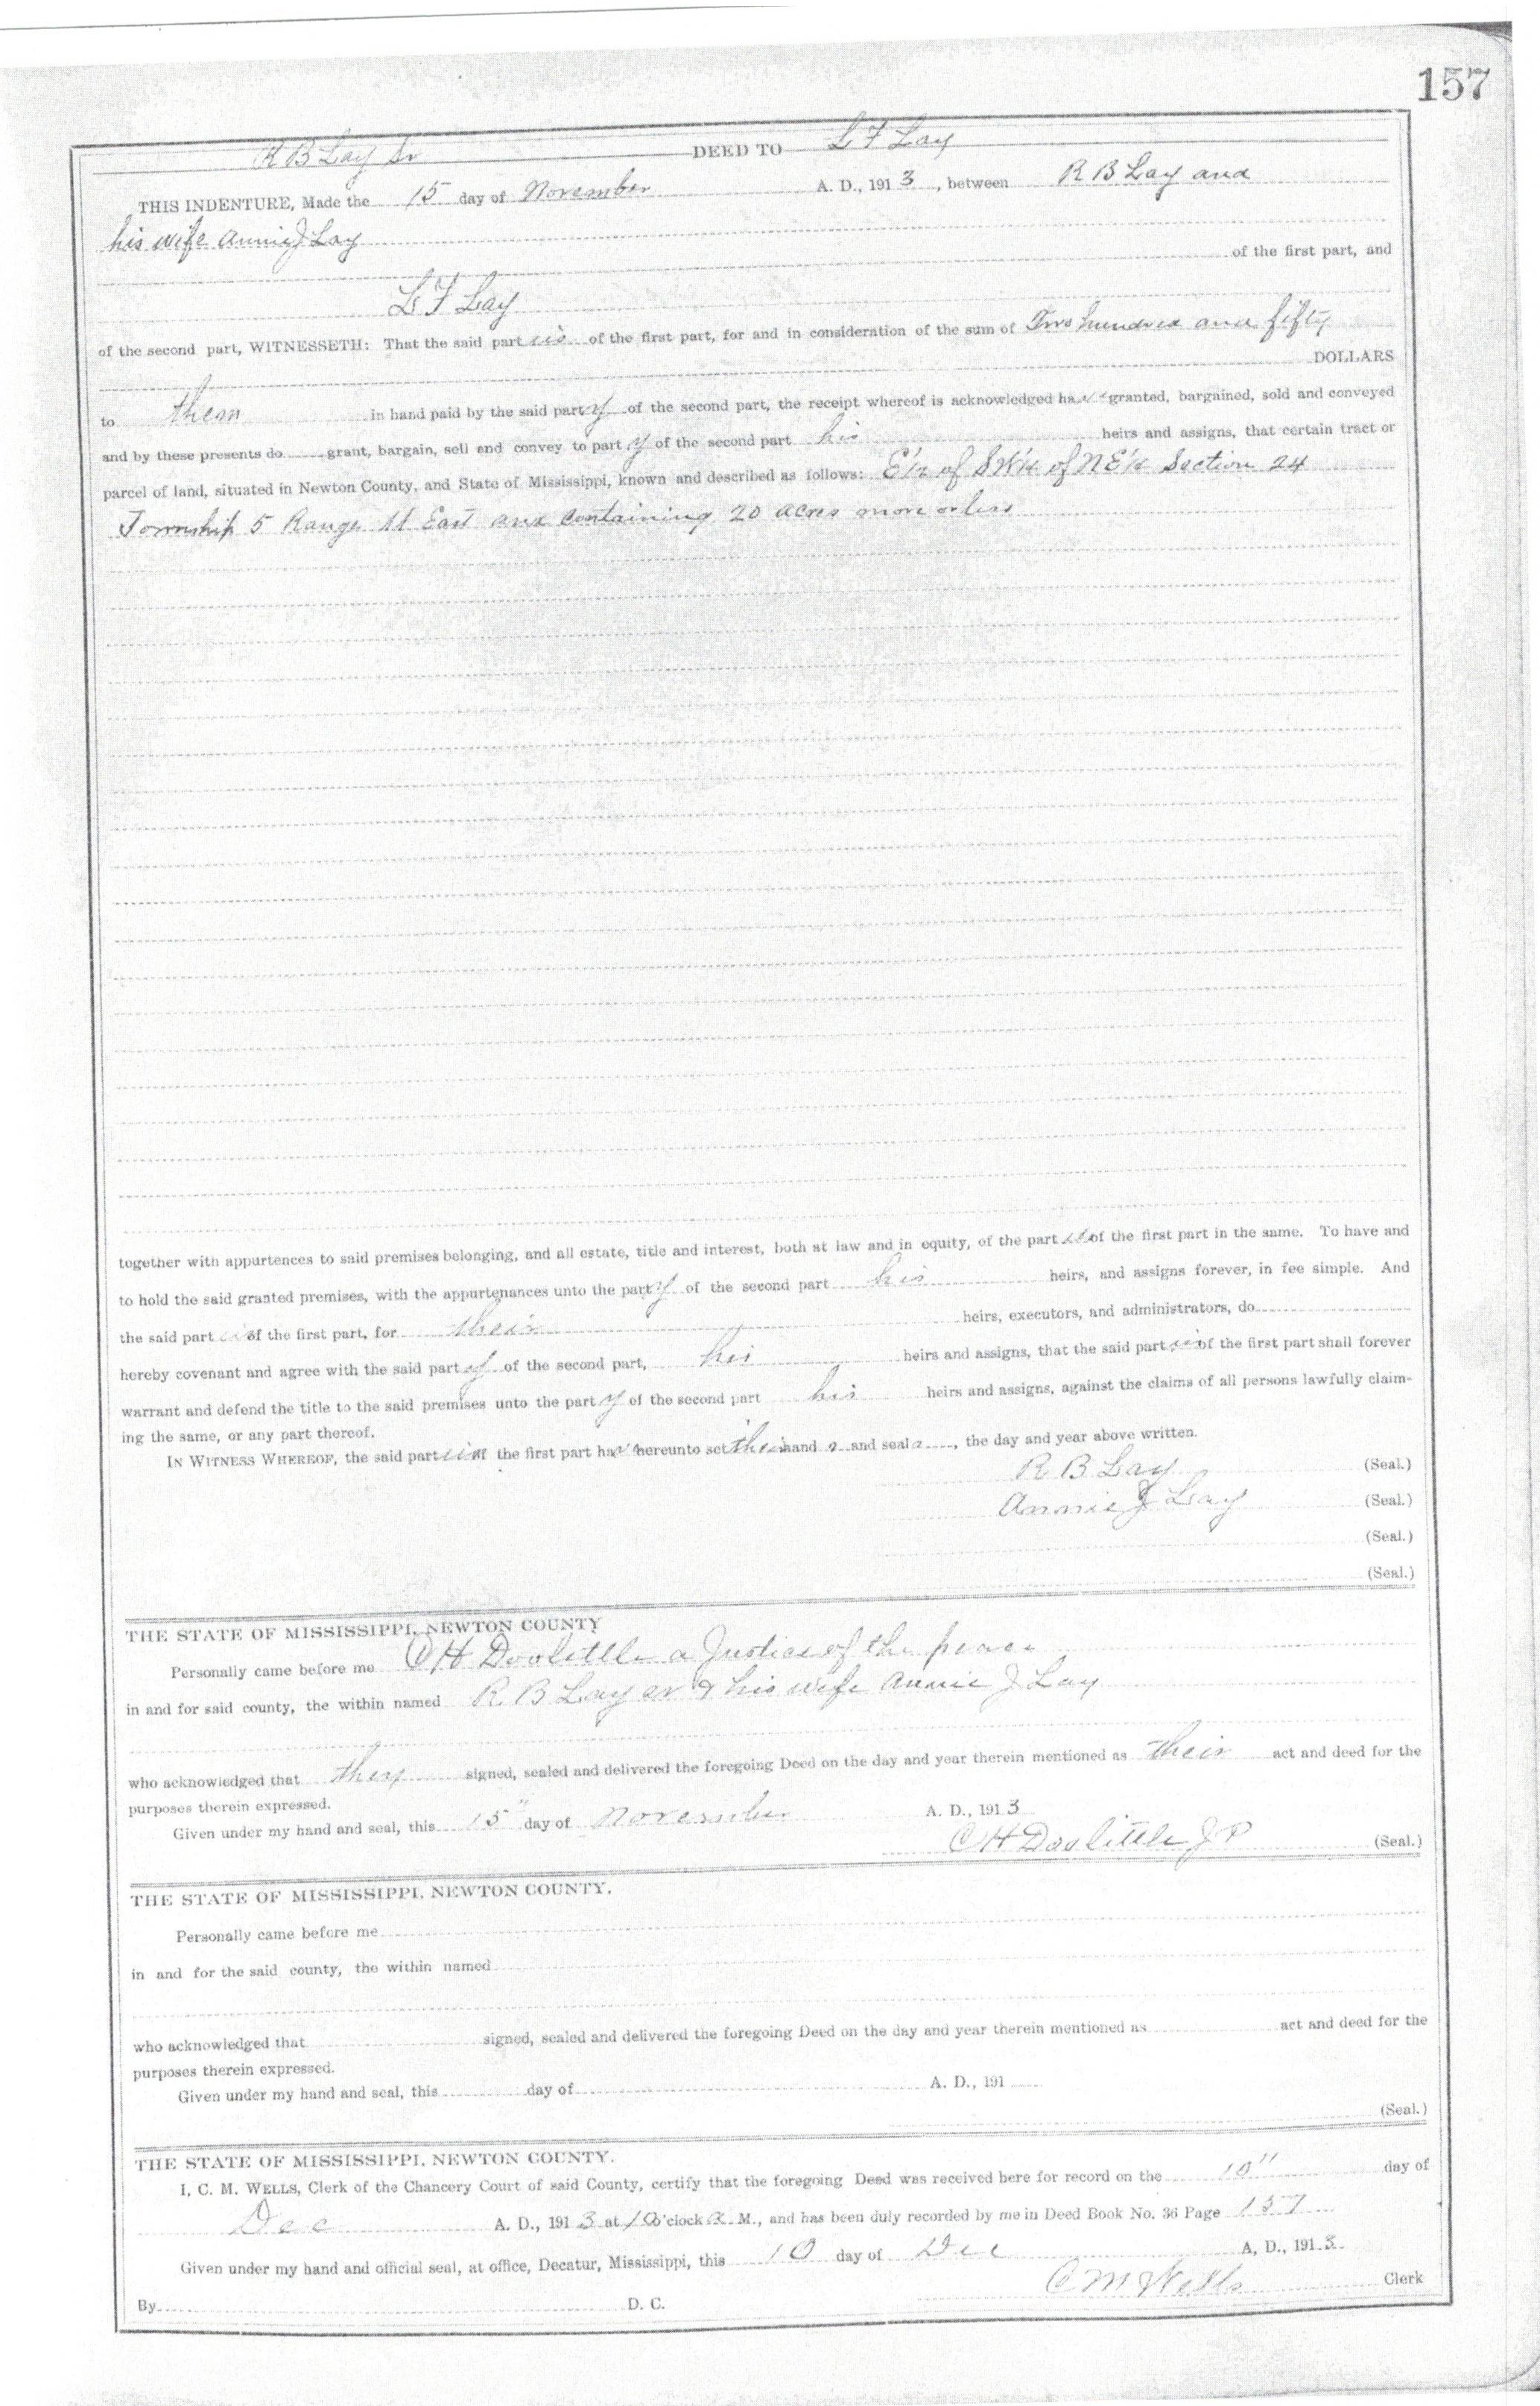 157
R B Lay Sr DEED TO L F Lay
THIS INDENTURE, Made the 15 day of November A. D., 1913, between R B Lay and
his wife Annie J Lay
of the first part, and
L F Lay
of the second part, WITNESSETH: That the said parties of the first part, for and in consideration of the sum of Two hundred and fifty
DOLLARS
to them in hand paid by the said party of the second part, the receipt whereof is acknowledged have granted, bargained, sold and conveyed
and by these presents do grant, bargain, sell and convey to party of the second part his heirs and assigns, that certain tract or
parcel of land, situated in Newton County, and State of Mississippi, known and described as follows: E½ of SW¼ of NE¼ Section 24
Township 5 Range 11 East and containing 20 acres more or less
together with appurtences to said premises belonging, and all estate, title and interest, both at law and in equity, of the parties of the first part in the same. To have and
to hold the said granted premises, with the appurtenances unto the party of the second part his heirs, and assigns forever, in fee simple. And
the said parties of the first part, for their heirs, executors, and administrators, do
hereby covenant and agree with the said party of the second part, his heirs and assigns, that the said parties of the first part shall forever
warrant and defend the title to the said premises unto the party of the second part his heirs and assigns, against the claims of all persons lawfully claim-
ing the same, or any part thereof.
IN WITNESS WHEREOF, the said parties of the first part have hereunto set their hands and seals, the day and year above written.
R B Lay (Seal.)
Annie J Lay (Seal.)
(Seal.)
(Seal.)
THE STATE OF MISSISSIPPI, NEWTON COUNTY
Personally came before me C H Doolittle a Justice of the peace
in and for said county, the within named R B Lay sr & his wife Annie J Lay
who acknowledged that they signed, sealed and delivered the foregoing Deed on the day and year therein mentioned as their act and deed for the
purposes therein expressed.
Given under my hand and seal, this 15" day of November A. D., 1913
C H Doolittle J P (Seal.)
THE STATE OF MISSISSIPPI, NEWTON COUNTY.
Personally came before me
in and for the said county, the within named
who acknowledged that signed, sealed and delivered the foregoing Deed on the day and year therein mentioned as act and deed for the
purposes therein expressed.
Given under my hand and seal, this day of A. D., 191
(Seal.)
THE STATE OF MISSISSIPPI, NEWTON COUNTY.
I, C. M. WELLS, Clerk of the Chancery Court of said County, certify that the foregoing Deed was received here for record on the 10" day of
Dec A. D., 1913 at 10 o'clock a. M., and has been duly recorded by me in Deed Book No. 36 Page 157
Given under my hand and official seal, at office, Decatur, Mississippi, this 10 day of Dec A, D., 1913.
C M Wells Clerk
By D. C.